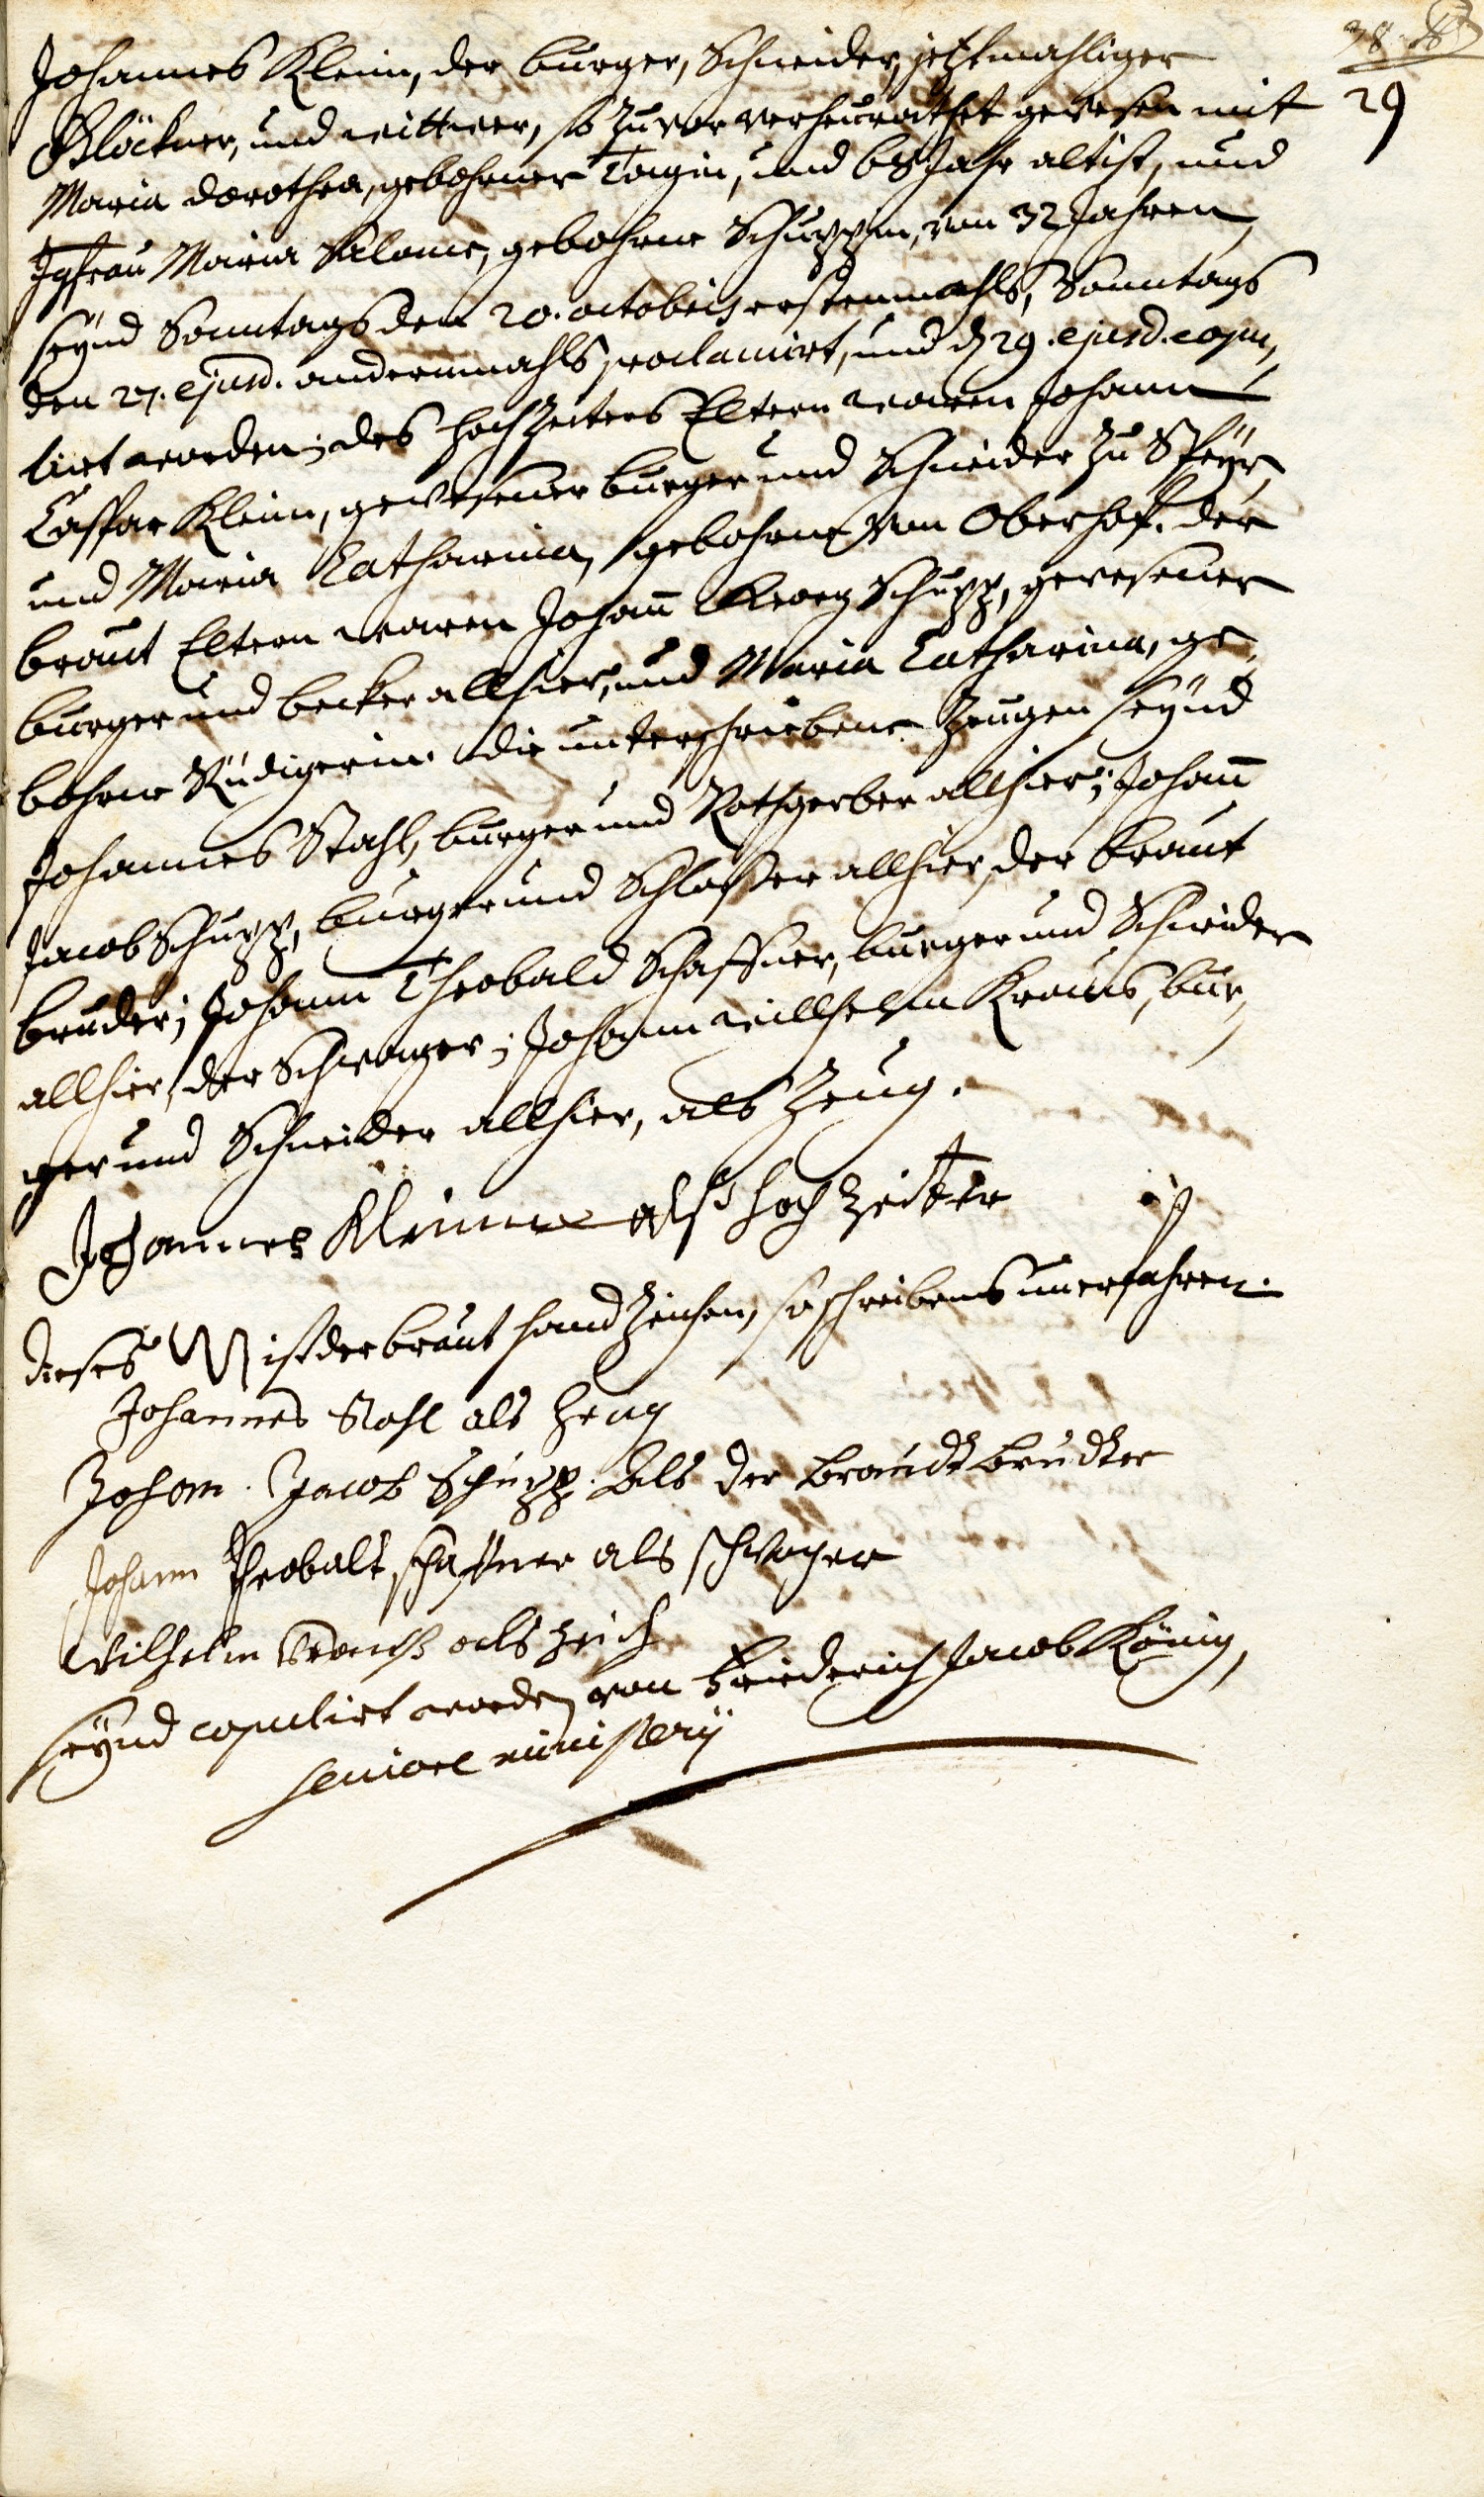 29
Johannes Kleim, der burger, Schneider, jetztmahliger
Glöckner, und wittwer, so zuvor verheurathet gewesen mit
Maria dorothea, gebohrner Tagin, und 68 Jahr alt ist, und
Jgfrau Maria Salome, gebohrne Schuppin, von 32 Jahren,
seynd Sonntags den 20. octobris erstenmahls, Sonntags
den 27. ejusd. andernmahls proclamirt, und d. 29. ejusd. copu,
lirt worden; des hochzeiters Eltern waren Johann
Casspar Kleim, gewesener burger und Schneider zu Speyr,
und Maria Catharina, gebohrne von Oberhof. der
braut Eltern waren Johañ Georg Schupp, gewesener
burger und becker allhier, und Maria Catharina, ge,
bohrne Rüdigerin. die unterschriebene Zeugen seynd
Johannes Stahl, burger und Rothgerber allhier; Johañ
Jacob Schupp, burger und Schlosser allhier, der braut
bruder; Johann Theobald Schaffner, burger und Schneider
allhier, der Schwager; Johann Willhelm Kraus, bur,
ger und Schneider allhier, als Zeug.
Johannes Kleim alß hoch zeitter
dieses ist der braut handzeichen, so schreibens unerfahren.
Johannes Stahl als Zeug
Johan. Jacob Schupp. Als der braudt brudter
Johann Theobalt schaffner als schwager
Wilhelm Krauß als zeich
seynd copulirt worden von Friederich Jacob König,
seniore ministerij